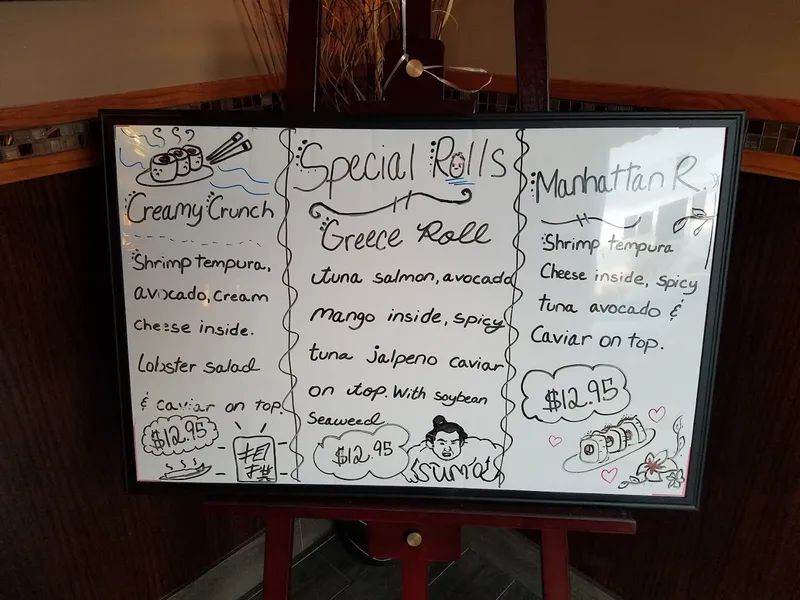 Creamy Crunch
Shrimp tempura,
avocado, cream
cheese inside.
Lobster salad
& caviar on top.
$12.95
Special Rolls
Greece Roll
tuna salmon, avocado
mango inside, spicy
tuna jalpeno caviar
on top. With soybean
Seaweed
$12.95
Manhattan R.
Shrimp tempura
Cheese inside, spicy
tuna avocado &
Caviar on top.
$12.95